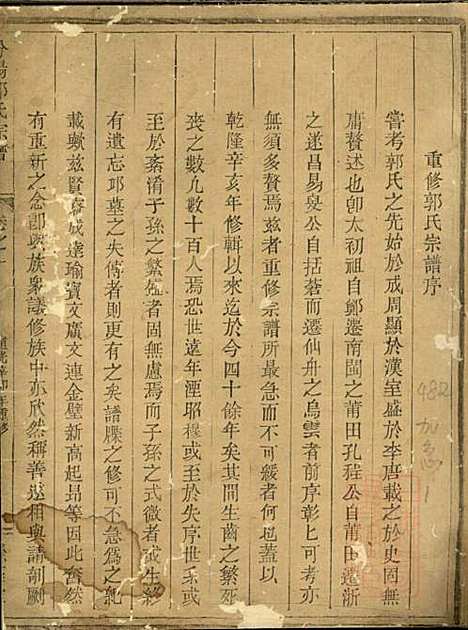 重修郭氏宗譜序
嘗考郭氏之先始於成周顯於漢室盛於李唐載之於史固無
庸贅述也卽太初祖自鄭遷南閩之莆田孔程公自莆田遷浙
之遂昌易奐公自括蒼而遷仙舟之烏雲者前序彰上可考亦
無須多贅焉茲者重修宗譜所最急而不可緩者何也蓋以
乾隆辛亥年修輯以來迄於今四十餘年矣其間生齒之繁死
喪之數凡數十百人焉恐世遠年湮昭穆或至於失序世系或
至於紊淆子孫之繁盛者固無慮焉而子孫之式微者或生終
有遺忘邱墓之失傳者則更有之矣譜牒之修可不急為之
載歟茲賢裔成達瑜寶文廣文連金璧新高起昂等因此奮然
有重新之念卽與族衆議修族中亦欣然稱善遂相與請剞劂
郭氏宗譜
卷之
年重修
482